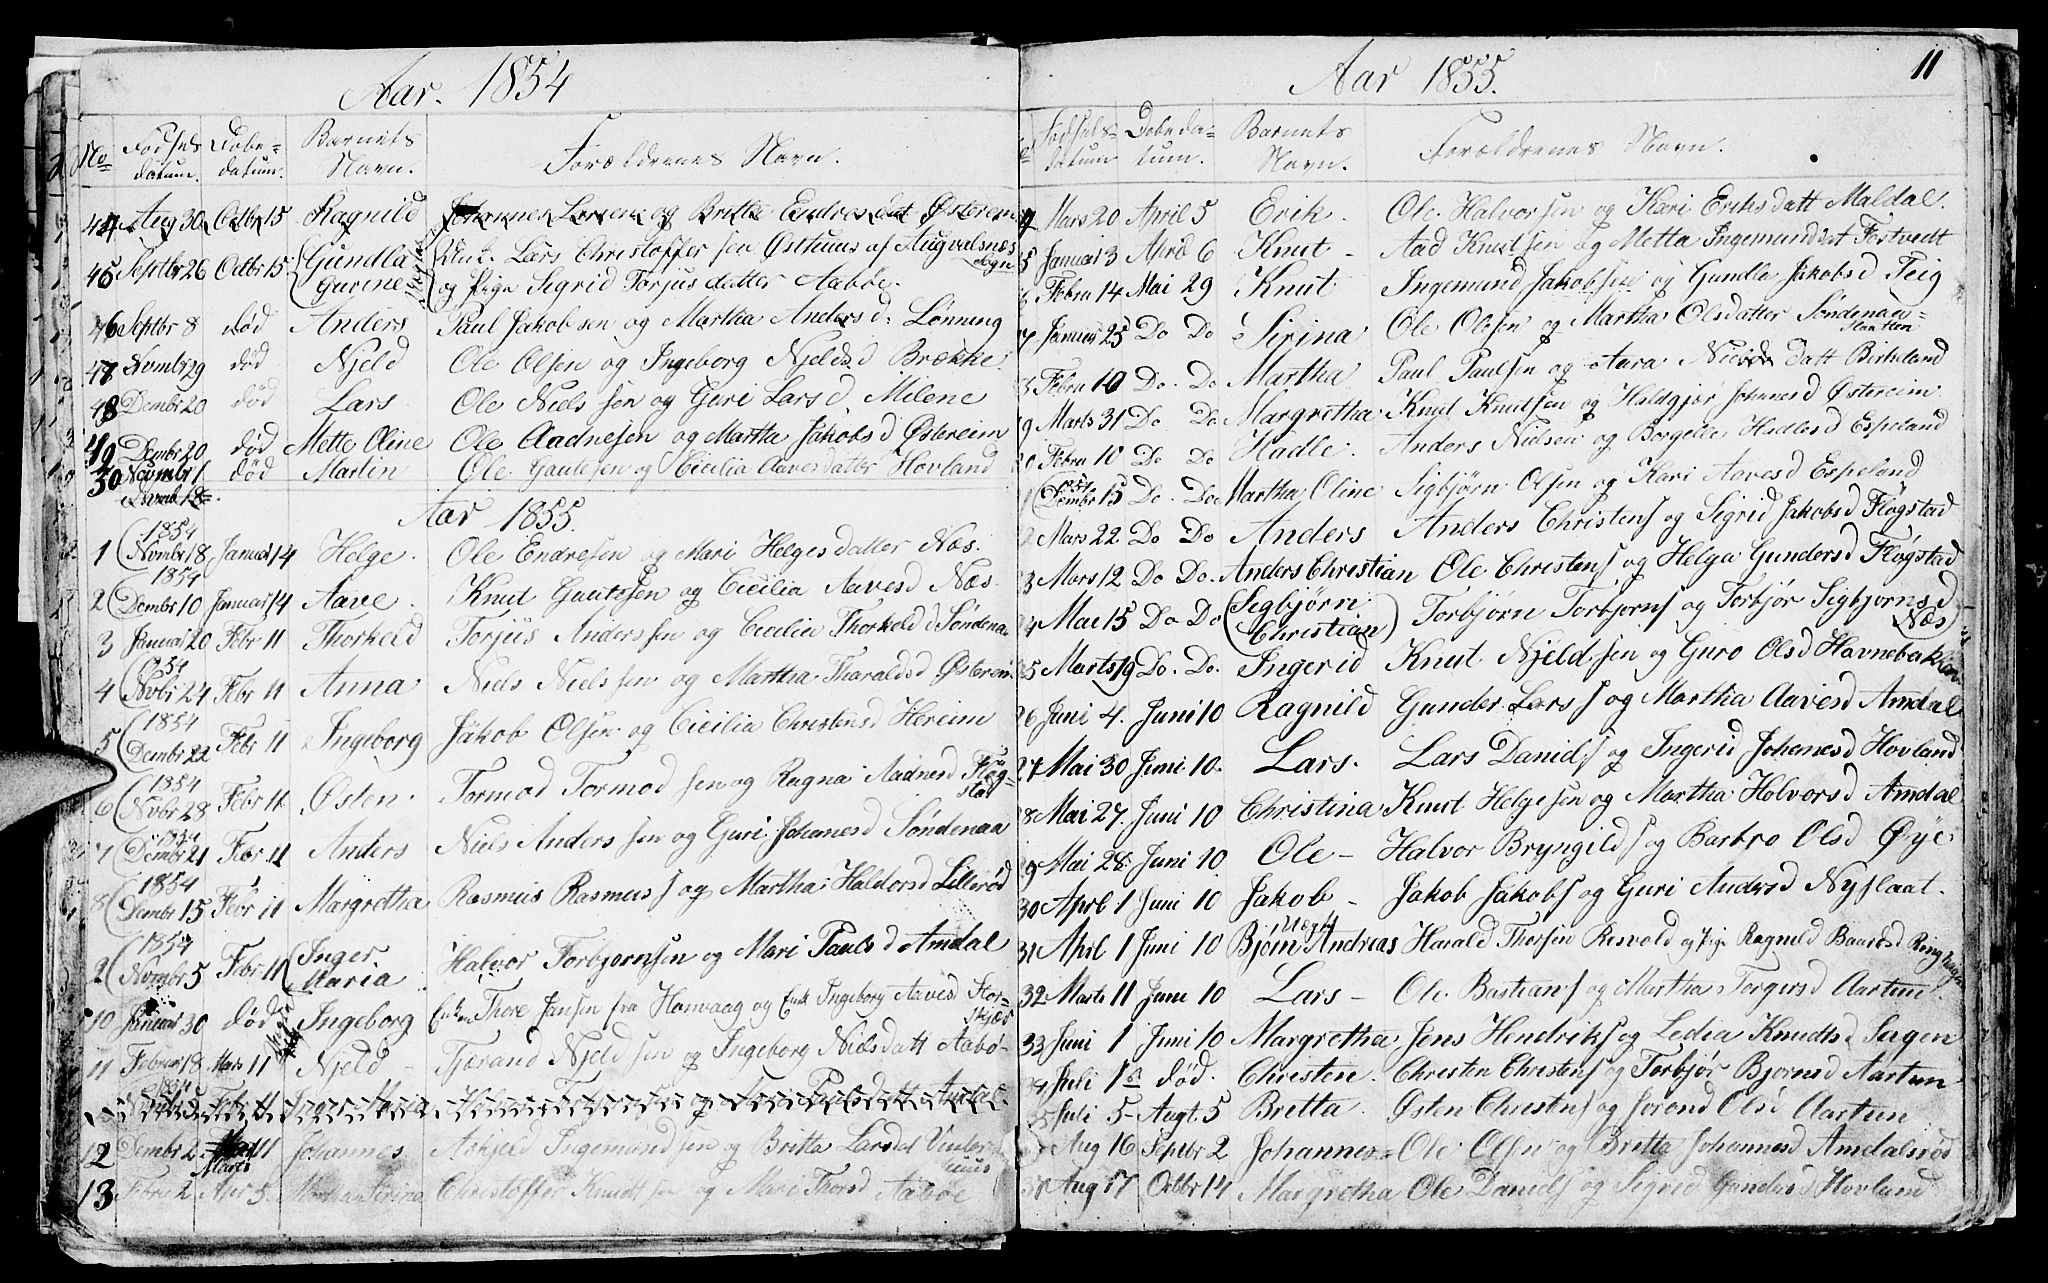 Aar. 1854
No Fødsels datum. Døbe- datum. Barnets Navn. Forældrenes Navn.
44 Aug 30 Octbr 15 Ragnild Johannes Larsen og Britha Endresdatt Østerem
45 Septbr 26 Octbr 15 Gundla Gurine Enk. Lars Christoffersen Østhuus af Augvalsnæs Sogn
og Pige Sigrid Torjusdatter Aabøe.
46 Septbr 8 død Anders Paul Jakobsen og Martha Andersd: Lønning
47 Novmbr 29 død Njeld Ole Olsen og Ingeborg Njeldsd Brække.
48 Dembr 20 død Lars Ole Nielssen og Guri Larsd Milene
49 Dembr 20 død Mette Oline Ole Aadnesen og Martha Jakobsd Østereim
50 Novmbr 1 død Martin Ole Gautesen og Cicilia Aavesdatter Hovland
Aar 1855.
1 (1854 Novmbr 18 Januar 14 Helge. Ole Endresen og Mari Helgesdatter Næs.
2 (1854 Dembr 10 Januar 14 Aave. Knut Gautssen og Cicilia Aavesd Næs.
3 Januar 20 Febr 11 Thorkeld Torjus Anderssen og Cicilia Thorkeldsd Søndenaa
4 (1854 Nvbr 24 Febr 11 Anna Niels Nielssen og Martha Tharaldsd Østerem
5 (1854 Dembr 22 Febr 11 Ingeborg Jakob Olsen og Cicilia Christensd Hereim
6 (1854 Nvbr 28 Febr 11 Østen. Tormod Tormodsen og Ragna Aadnesd Fløgstad
7 (1854 Dembr 21 Febr 11 Anders Niels Anderssen og Guri Johanesd Søndenaa
8 (1854 Dembr 15 Febr 11 Margretha Rasmus Rasmuss og Martha Haldorsd Lillerød
(1854 Novmbr 5 Febr 11 Inger Maria Halvor Torbjornsen og Mari Paulsd Amdal
10 Januar 30 død Ingeborg Enkm Thore Jansen fra Honvaag og Enk Ingeborg Aavesd Storskjær
11 Februar 18 Mars 11 Njeld Tjerand Njeldsen og Ingeborg Nielsdatt Aabø
12 Dembr 2 Marts 11 Johannes Askjeld Ingemundsen og Britta Larsdat Vinterhuus
13 Febru 2 Apr 5. Martha Serina Christoffer Knudtsen og Mari Thorsd Aabøe
Aar 1855. 11
Fødsels- datum Døbeda- tum. Barnets Navn. Forældrenes Navn.
Mars 20 April 5 Erik. Ole Halvorssen og Kari Eriksdatt Maldal.
Januar 3 April 6 Knut - Aad Knutsen og Metta Ingemundsdat Tortvedt
Febru 14 Mai 29 Knut Ingemund Jakobsen og Gundla Jakobsd Teig
Januar 25 Do Do Serina Ole Olssen og Martha Olsdatter Søndenaaslaatten
Febru 10 Do. Do Martha Paul Paulsen og Aara Nielsdatt Birkeland
Marts 31 Do Do Margretha Knut Knutssen og Haldgjør Johanesd Østereim.
20 Febru 10 Do Do Hadle. Anders Nielsen og Borgelle Hadlesd Espeland
(1854 Dembr 15 Do. Do Martha Oline Sigbjørn Olsen og Kari Aavesd Espeland
Mars 22 Do Do Anders Anders Christens og Sigrid Jakobsd Fløgstad
3 Mars 12 Do Do. Anders Christian Ole Christens og Helga Gundersd Fløgstad
24 Mai 15 Do Do (Sigbjørn Christian) Torbjørn Torbjorns og Torbjør Sigbjornsd Næs)
25 Marts 19 Do. Do. Ingerid Knut Njeldsen og Guro Olsd Havnebakken
26 Juni 4. Juni 10 Ragnild Gunder Larss og Martha Aavesd Amdal
27 Mai 30 Juni 10. Lars. Lars Daniels og Ingerid Johanesd Hovland
28 Mai 27. Juni 10 Christina Knut Helgesen og Martha Holvorsd Amdal
29 Mai 28. Juni 10 Ole - Halvor Bryngilds og Barbro Olsd Øye.
30 Aprl 1 Juni 10 Jakob - Jakob Jakobs og Guri Andersd Nyslaat.
31 Aprl 1 Juni 10 Bjørn Andreas Uægt Harald Thorsen Røsvold og Pige Ragnild Baardsd Ringhaugen
32 Marts 11 Juni 10 Lars - Ole Bastians og Martha Torgersd Aartun.
33 Juni 1 Juni 10 Margretha Jens Hendriks og Ledia Knudtsd Sagen
34 Juli 1ste død. Christen. Christen Christens og Torbjør Bjornsd Aartun
35 Juli 5 - Augt. 5 Bretta. Østen Christens og Jorand Olsd Aartun
Aug 16 Septbr 2 Johannes - Ole Olsen og Bretta Johannesd Amdalsrød
37 Aug 17 Octbr 14 Margretha Ole Daniels og Sigrid Gundersd Hovland